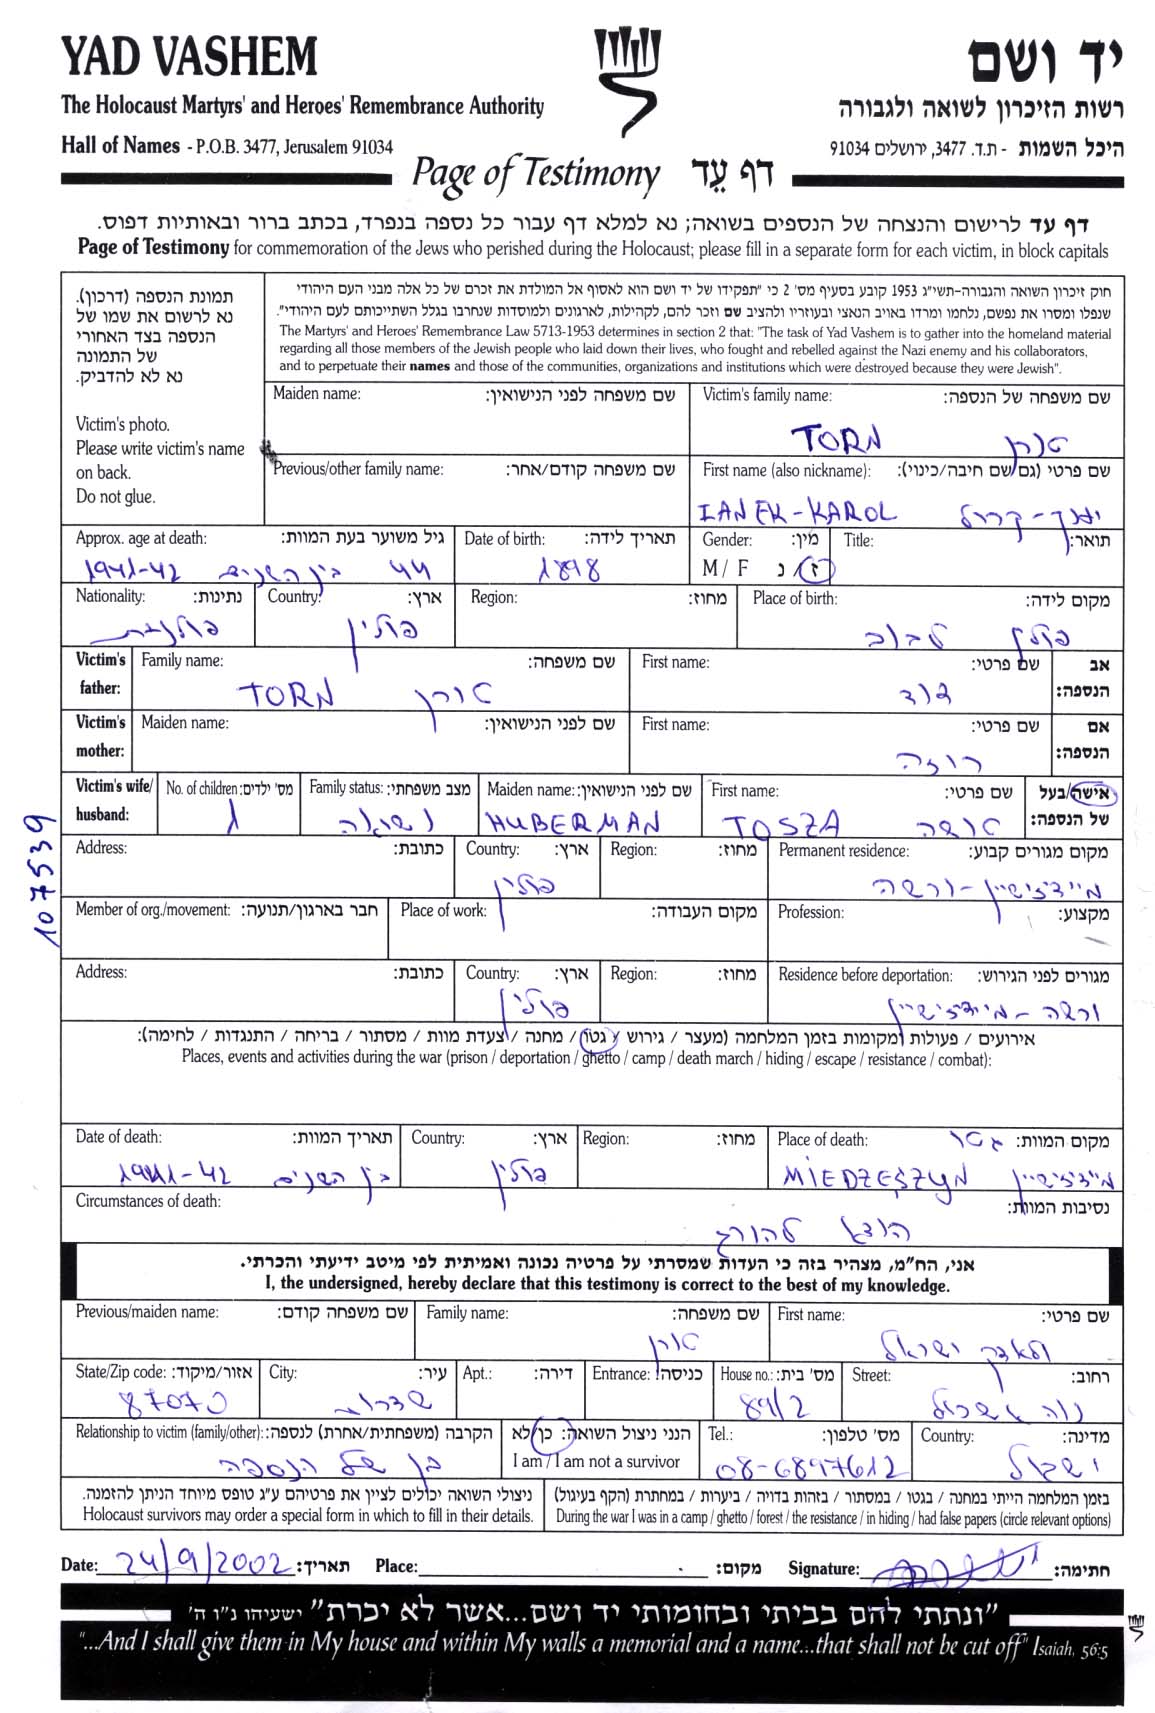 YAD VASHEM
יד ושם
The Holocaust Martyrs' and Heroes' Remembrance Authority
רשות הזיכרון לשואה ולגבורה
Hall of Names - P.O.B. 3477, Jerusalem 91034
היכל השמות - ת.ד. 3477, ירושלים 91034
Page of Testimony דף עֵד
דף עד לרישום והנצחה של הנספים בשואה; נא למלא דף עבור כל נספה בנפרד, בכתב ברור ובאותיות דפוס.
Page of Testimony for commemoration of the Jews who perished during the Holocaust; please fill in a separate form for each victim, in block capitals
תמונת הנספה (דרכון).
נא לרשום את שמו של
הנספה בצד האחורי
של התמונה
נא לא להדביק.
Victim's photo.
Please write victim's name
on back.
Do not glue.
חוק זיכרון השואה והגבורה-תשי"ג 1953 קובע בסעיף מס' 2 כי "תפקידו של יד ושם הוא לאסוף אל המולדת את זכרם של כל אלה מבני העם היהודי
שנפלו ומסרו את נפשם, נלחמו ומרדו באויב הנאצי ובעוזריו ולהציב שם וזכר להם, לקהילות, לארגונים ולמוסדות שנחרבו בגלל השתייכותם לעם היהודי".
The Martyrs' and Heroes' Remembrance Law 5713-1953 determines in section 2 that: "The task of Yad Vashem is to gather into the homeland material
regarding all those members of the Jewish people who laid down their lives, who fought and rebelled against the Nazi enemy and his collaborators,
and to perpetuate their names and those of the communities, organizations and institutions which were destroyed because they were Jewish".
Maiden name: שם משפחה לפני הנישואין:
Victim's family name: שם משפחה של הנספה:
TORN טורן
Previous/other family name: שם משפחה קודם/אחר:
First name (also nickname): שם פרטי (גם שם חיבה/כינוי):
IANEK-KAROL ינק-קרול
Approx. age at death: גיל משוער בעת המוות:
44 בין השנים 1941-42
Date of birth: תאריך לידה:
1898
Gender: מין:
M / F ז/נ
Title: תואר:
Nationality: נתינות:
פולנית
Country: ארץ:
פולין
Region: מחוז:
Place of birth: מקום לידה:
פולין לבוב
Victim's father:
Family name: שם משפחה:
TORN טורן
First name: שם פרטי:
דוד
אב הנספה:
Victim's mother:
Maiden name: שם לפני הנישואין:
First name: שם פרטי:
רוזה
אם הנספה:
Victim's wife/husband:
No. of children: מס' ילדים:
1
Family status: מצב משפחתי:
נשואה
Maiden name: שם לפני הנישואין:
HUBERMAN
First name: שם פרטי:
TOSZA טושה
אישה/בעל של הנספה:
Address: כתובת:
Country: ארץ:
פולין
Region: מחוז:
Permanent residence: מקום מגורים קבוע:
מיידזישין-ורשה
Member of org./movement: חבר בארגון/תנועה:
Place of work: מקום העבודה:
Profession: מקצוע:
Address: כתובת:
Country: ארץ:
פולין
Region: מחוז:
Residence before deportation: מגורים לפני הגירוש:
ורשה-מיידזישיין
אירועים / פעולות ומקומות בזמן המלחמה (מעצר / גירוש / גטו / מחנה / צעדת מוות / מסתור / בריחה / התנגדות / לחימה):
Places, events and activities during the war (prison / deportation / ghetto / camp / death march / hiding / escape / resistance / combat):
Date of death: תאריך המוות:
בין השנים 1941-42
Country: ארץ:
פולין
Region: מחוז:
Place of death: מקום המוות: גטו
MIEDZESZYN מיידזישיין
Circumstances of death: נסיבות המוות:
הוצא להורג
אני, הח"מ, מצהיר בזה כי העדות שמסרתי על פרטיה נכונה ואמיתית לפי מיטב ידיעתי והכרתי.
I, the undersigned, hereby declare that this testimony is correct to the best of my knowledge.
Previous/maiden name: שם משפחה קודם:
Family name: שם משפחה:
טורן
First name: שם פרטי:
ישראל
State/Zip code: אזור/מיקוד:
87070
City: עיר:
שדרות
Apt.: דירה:
Entrance: כניסה:
House no.: מס' בית:
89/2
Street: רחוב:
נוה אשכול
Relationship to victim (family/other): הקרבה (משפחתית/אחרת) לנספה:
בן של הנספה
הנני ניצול השואה: כן/לא
I am / I am not a survivor
Tel.: מס' טלפון:
08-6897612
Country: מדינה:
ישראל
ניצולי השואה יכולים לציין את פרטיהם ע"ג טופס מיוחד הניתן להזמנה.
Holocaust survivors may order a special form in which to fill in their details.
בזמן המלחמה הייתי במחנה / בגטו / במסתור / בזהות בדויה / ביערות / במחתרת (הקף בעיגול)
During the war I was in a camp / ghetto / forest / the resistance / in hiding / had false papers (circle relevant options)
Date: 24/9/2002 תאריך:
Place: מקום:
Signature: חתימה:
"ונתתי להם בביתי ובחומותי יד ושם...אשר לא יכרת" ישעיהו נ"ו ה'
"...And I shall give them in My house and within My walls a memorial and a name...that shall not be cut off" Isaiah, 56:5
107539